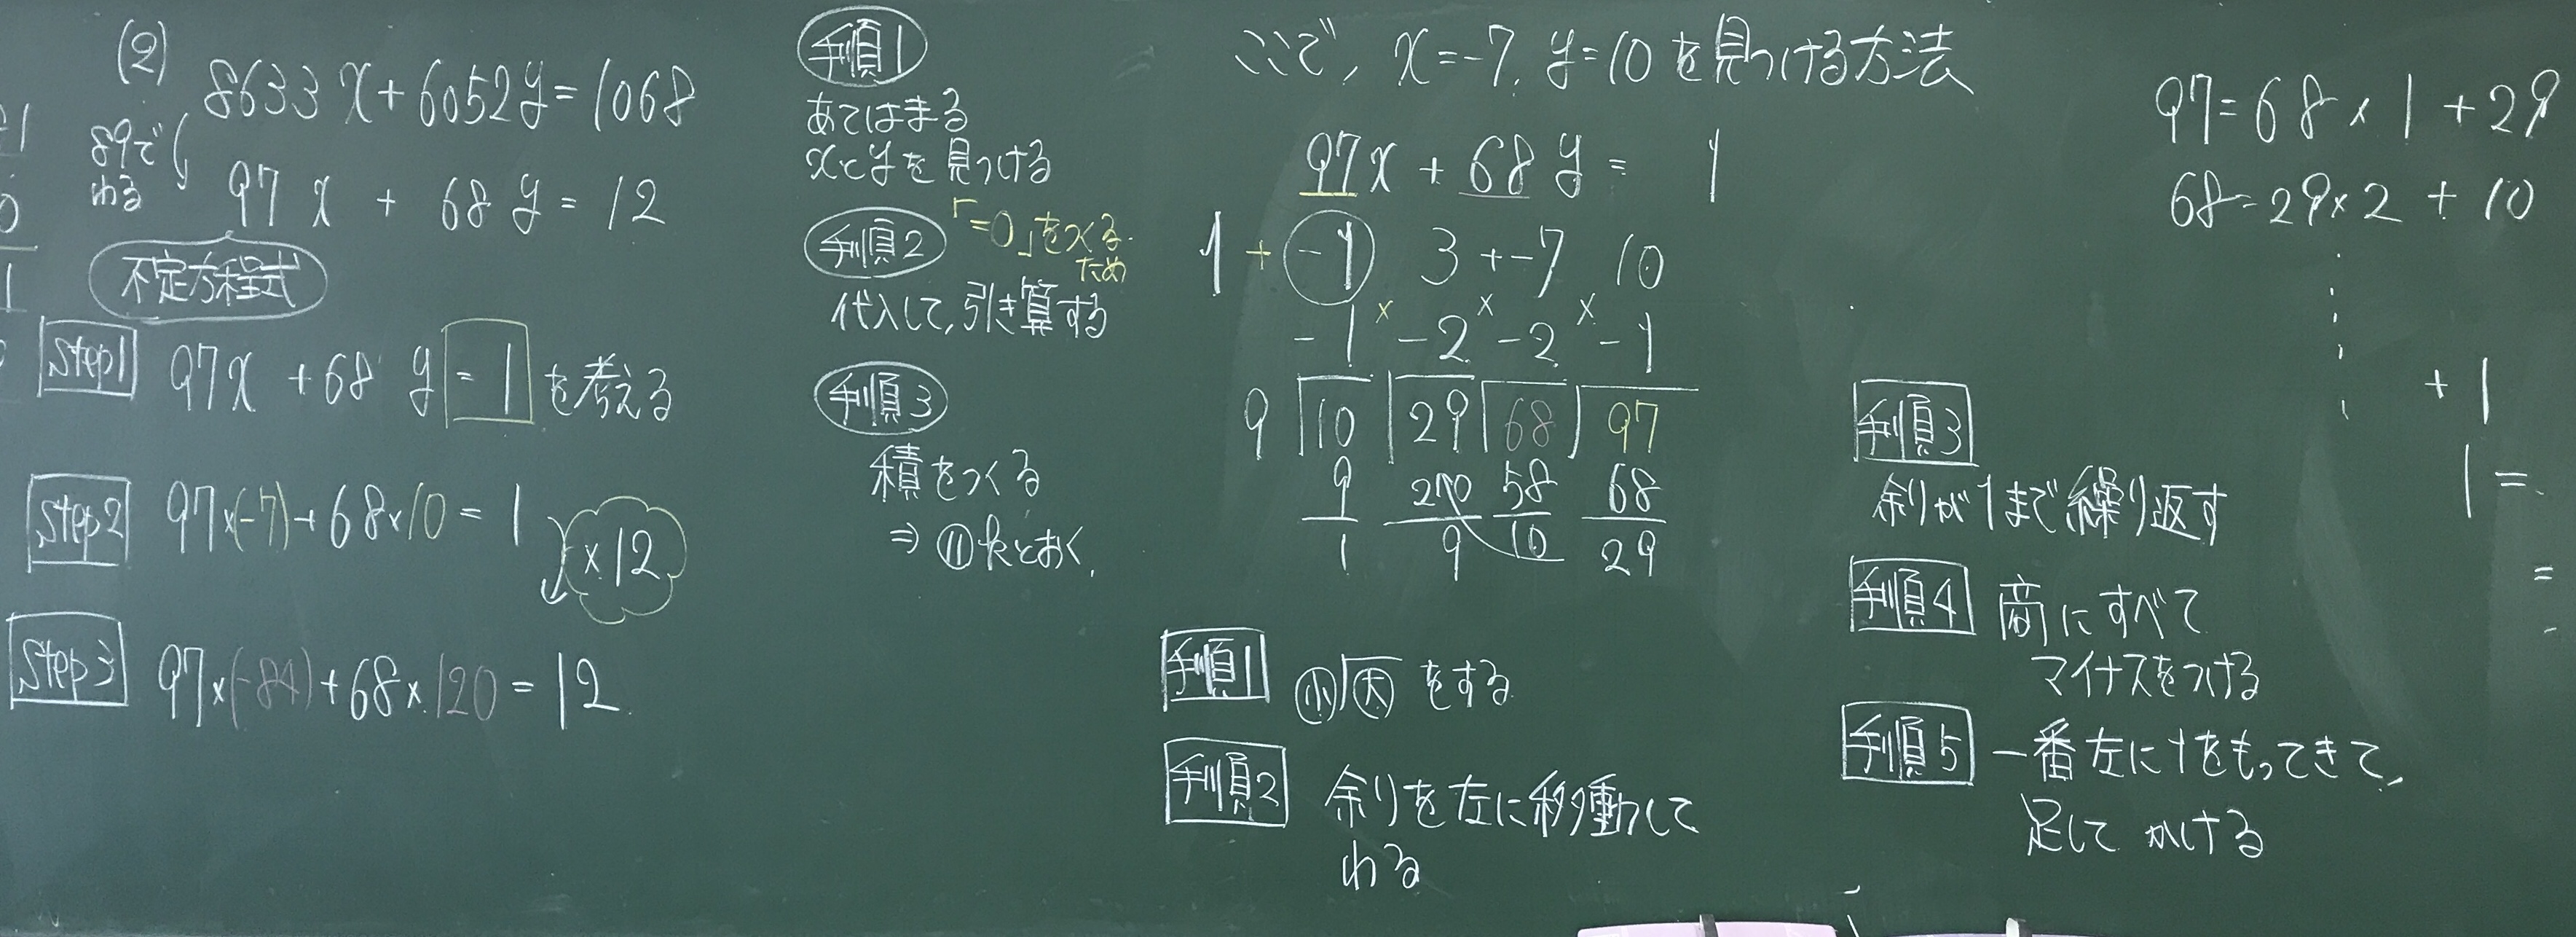 (2) 8633x+6052y=1068
89で
わる
97x + 68y = 12
不定方程式
Step1 97x + 68y = 1 を考える
Step2 97×(-7)+68×10 = 1
×12
Step3 97×(-84)+68×120 = 12
手順1
あてはまる
xとyを見つける
手順2 「=0」をつくる
ため
代入して,引き算する
手順3
積をつくる
⇒ kとおく.
ここで, x=-7, y=10を見つける方法
97x + 68y = 1
1 + -1 3 + -7 10
× × ×
-1 -2 -2 -1
9 10 29 68 97
9 20 58 68
1 9 10 29
手順1 小 大 をする
手順2 余りを左に移動して
わる
97=68×1+29
68=29×2+10
+1
1=
=
手順3
余りが1まで繰り返す
手順4 商にすべて
マイナスをつける
手順5 一番左に1をもってきて,
足して かける